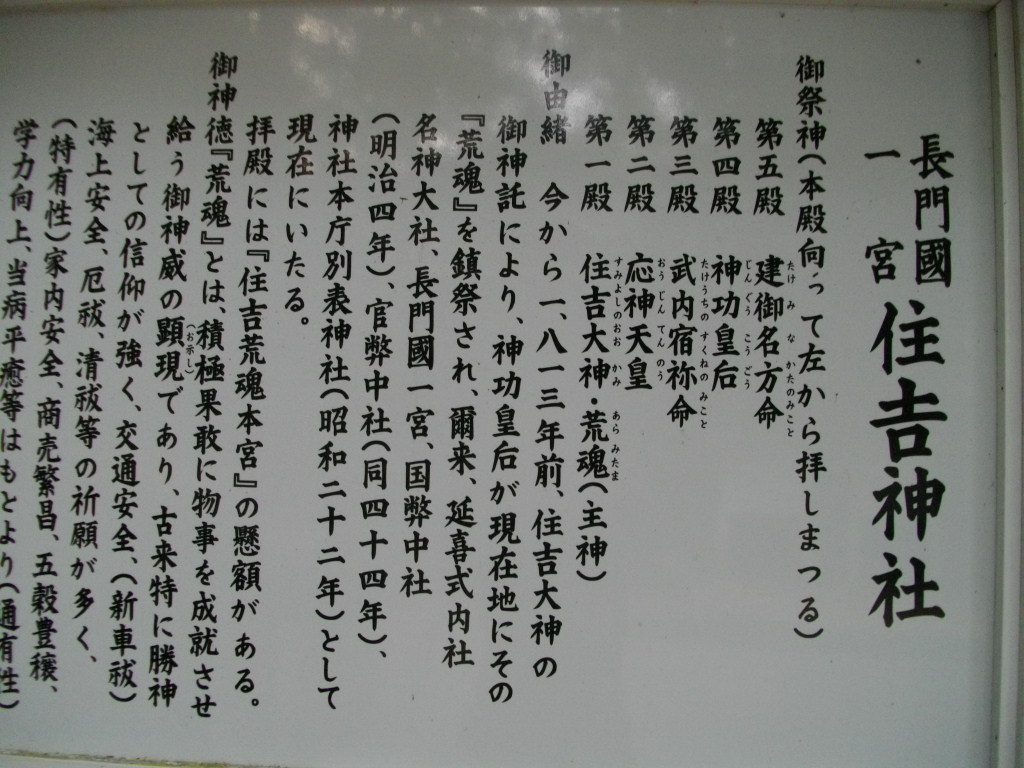 長門國
一宮 住吉神社
御祭神(本殿向って左から拝しまつる)
第五殿 建御名方命
たけみなかたのみこと
第四殿 神功皇后
じんぐうこうごう
第三殿 武内宿祢命
たけうちのすくねのみこと
第二殿 応神天皇
おうじんてんのう
第一殿 住吉大神・荒魂(主神)
すみよしのおおかみ あらみたま
御由緒 今から一、八一三年前、住吉大神の
御神託により、神功皇后が現在地にその
『荒魂』を鎮祭され、爾来、延喜式内社
名神大社、長門國一宮、国弊中社
(明治四年)、官弊中社(同四十四年)、
神社本庁別表神社(昭和二十二年)として
現在にいたる。
拝殿には『住吉荒魂本宮』の懸額がある。
御神徳『荒魂』とは、積極果敢に物事を成就させ
給う御神威の顕現であり、古来特に勝神
(お示し)
としての信仰が強く、交通安全、(新車祓)
海上安全、厄祓、清祓等の祈願が多く、
(特有性)家内安全、商売繁昌、五穀豊穣、
学力向上、当病平癒等はもとより(通有性)